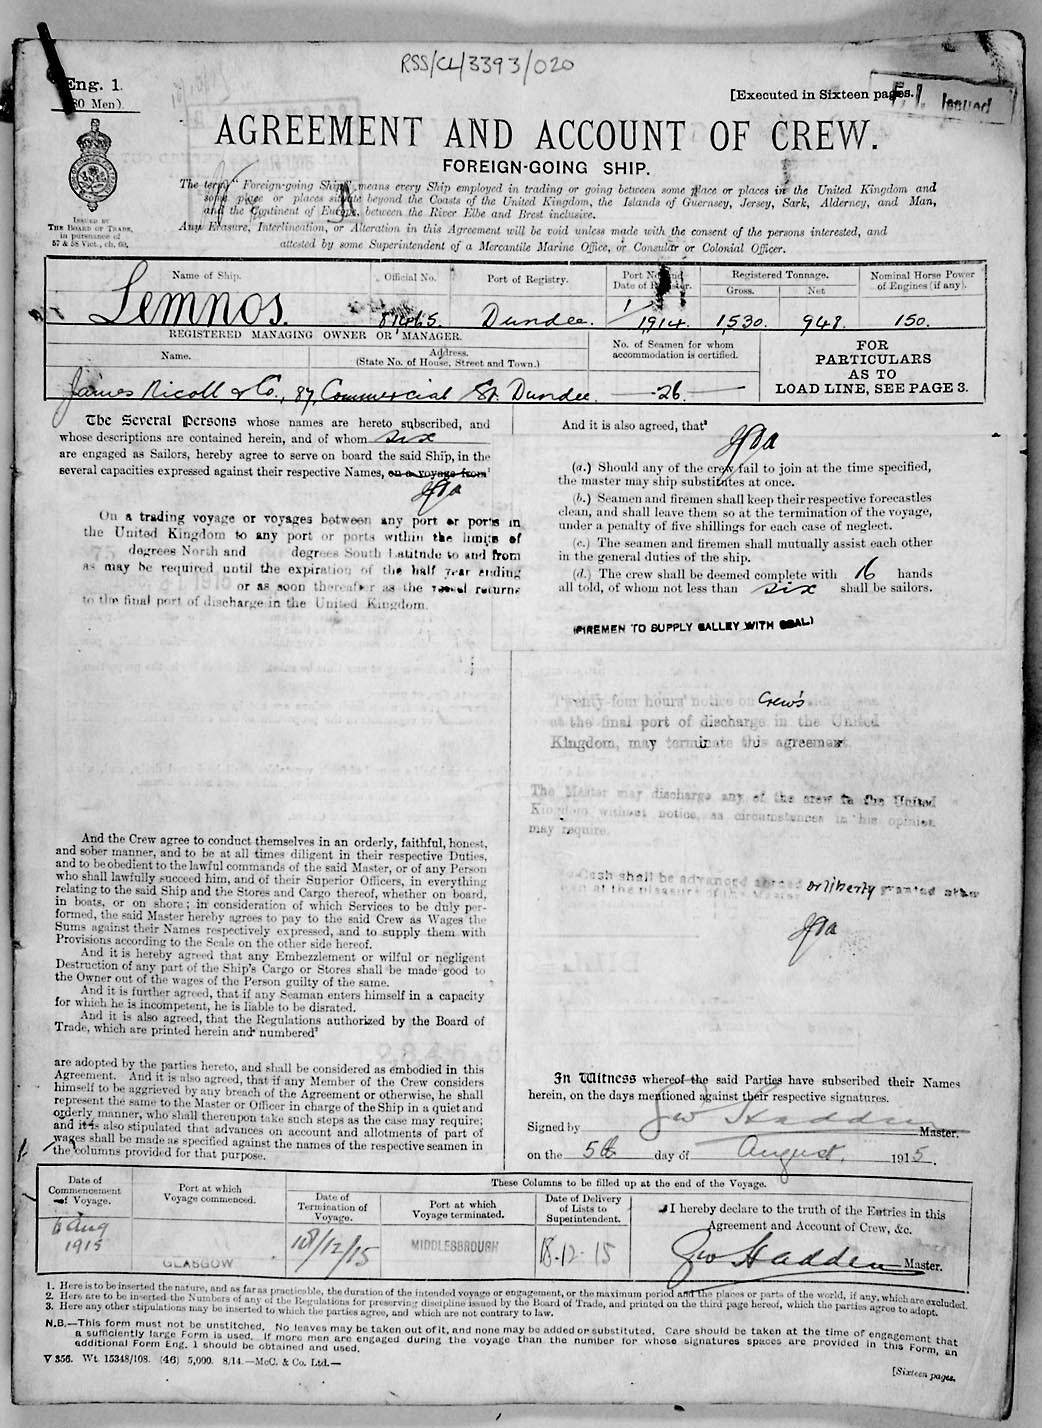 RSS/CL/3393/020
Eng. 1.
(30 Men).
[Executed in Sixteen pages.]
Issued
AGREEMENT AND ACCOUNT OF CREW.
FOREIGN-GOING SHIP.
ISSUED BY
THE BOARD OF TRADE,
in pursuance of
57 & 58 Vict., ch. 60.
The term "Foreign-going Ship" means every Ship employed in trading or going between some place or places in the United Kingdom and
some place or places situate beyond the Coasts of the United Kingdom, the Islands of Guernsey, Jersey, Sark, Alderney, and Man,
and the Continent of Europe, between the River Elbe and Brest inclusive.
Any Erasure, Interlineation, or Alteration in this Agreement will be void unless made with the consent of the persons interested, and
attested by some Superintendent of a Mercantile Marine Office, or Consular or Colonial Officer.
Name of Ship. Official No. Port of Registry. Port No. and Date of Register. Registered Tonnage. Gross. Net Nominal Horse Power of Engines (if any).
Lemnos. 81465. Dundee. 1/1914. 1,530. 948. 150.
REGISTERED MANAGING OWNER OR MANAGER.
Name. Address. (State No. of House, Street and Town.)
No. of Seamen for whom accommodation is certified.
FOR
PARTICULARS
AS TO
LOAD LINE, SEE PAGE 3.
James Nicoll & Co., 87, Commercial St. Dundee. 26.
The Several Persons whose names are hereto subscribed, and
whose descriptions are contained herein, and of whom six
are engaged as Sailors, hereby agree to serve on board the said Ship, in the
several capacities expressed against their respective Names, on a voyage from¹
On a trading voyage or voyages between any port or ports in
the United Kingdom to any port or ports within the limits of
degrees North and degrees South Latitude to and from
as may be required until the expiration of the half year ending
or as soon thereafter as the vessel returns
to the final port of discharge in the United Kingdom.
And the Crew agree to conduct themselves in an orderly, faithful, honest,
and sober manner, and to be at all times diligent in their respective Duties,
and to be obedient to the lawful commands of the said Master, or of any Person
who shall lawfully succeed him, and of their Superior Officers, in everything
relating to the said Ship and the Stores and Cargo thereof, whether on board,
in boats, or on shore; in consideration of which Services to be duly per-
formed, the said Master hereby agrees to pay to the said Crew as Wages the
Sums against their Names respectively expressed, and to supply them with
Provisions according to the Scale on the other side hereof.
And it is hereby agreed that any Embezzlement or wilful or negligent
Destruction of any part of the Ship's Cargo or Stores shall be made good to
the Owner out of the wages of the Person guilty of the same.
And it is further agreed, that if any Seaman enters himself in a capacity
for which he is incompetent, he is liable to be disrated.
And it is also agreed, that the Regulations authorized by the Board of
Trade, which are printed herein and numbered²
are adopted by the parties hereto, and shall be considered as embodied in this
Agreement. And it is also agreed, that if any Member of the Crew considers
himself to be aggrieved by any breach of the Agreement or otherwise, he shall
represent the same to the Master or Officer in charge of the Ship in a quiet and
orderly manner, who shall thereupon take such steps as the case may require;
and it is also stipulated that advances on account and allotments of part of
wages shall be made as specified against the names of the respective seamen in
the columns provided for that purpose.
And it is also agreed, that³
(a.) Should any of the crew fail to join at the time specified,
the master may ship substitutes at once.
(b.) Seamen and firemen shall keep their respective forecastles
clean, and shall leave them so at the termination of the voyage,
under a penalty of five shillings for each case of neglect.
(c.) The seamen and firemen shall mutually assist each other
in the general duties of the ship.
(d.) The crew shall be deemed complete with 16 hands
all told, of whom not less than six shall be sailors.
(FIREMEN TO SUPPLY GALLEY WITH COAL)
Twenty-four hours' notice on Crew's
at the final port of discharge in the United
Kingdom, may terminate this agreement.
The Master may discharge any of the crew in the United
Kingdom without notice, as circumstances in his opinion
may require.
Cash shall be advanced abroad or liberty granted other
than at the pleasure of the Master
In Witness whereof the said Parties have subscribed their Names
herein, on the days mentioned against their respective signatures.
Signed by Geo Hadden Master.
on the 5th day of August. 1915.
Date of Commencement of Voyage. Port at which Voyage commenced.
These Columns to be filled up at the end of the Voyage.
Date of Termination of Voyage. Port at which Voyage terminated. Date of Delivery of Lists to Superintendent.
I hereby declare to the truth of the Entries in this
Agreement and Account of Crew, &c.
6 Aug 1915 GLASGOW 18/12/15 MIDDLESBROUGH 18.12.15
Geo Hadden Master.
1. Here is to be inserted the nature, and as far as practicable, the duration of the intended voyage or engagement, or the maximum period and the places or parts of the world, if any, which are excluded.
2. Here are to be inserted the Numbers of any of the Regulations for preserving discipline issued by the Board of Trade, and printed on the third page hereof, which the parties agree to adopt.
3. Here any other stipulations may be inserted to which the parties agree, and which are not contrary to law.
N.B.—This form must not be unstitched. No leaves may be taken out of it, and none may be added or substituted. Care should be taken at the time of engagement that
a sufficiently large Form is used. If more men are engaged during the voyage than the number for whose signatures spaces are provided in this Form, an
additional Form Eng. 1 should be obtained and used.
V 356. Wt. 15348/108. (46) 5,000. 8/14.—McC. & Co. Ltd.—
[Sixteen pages.